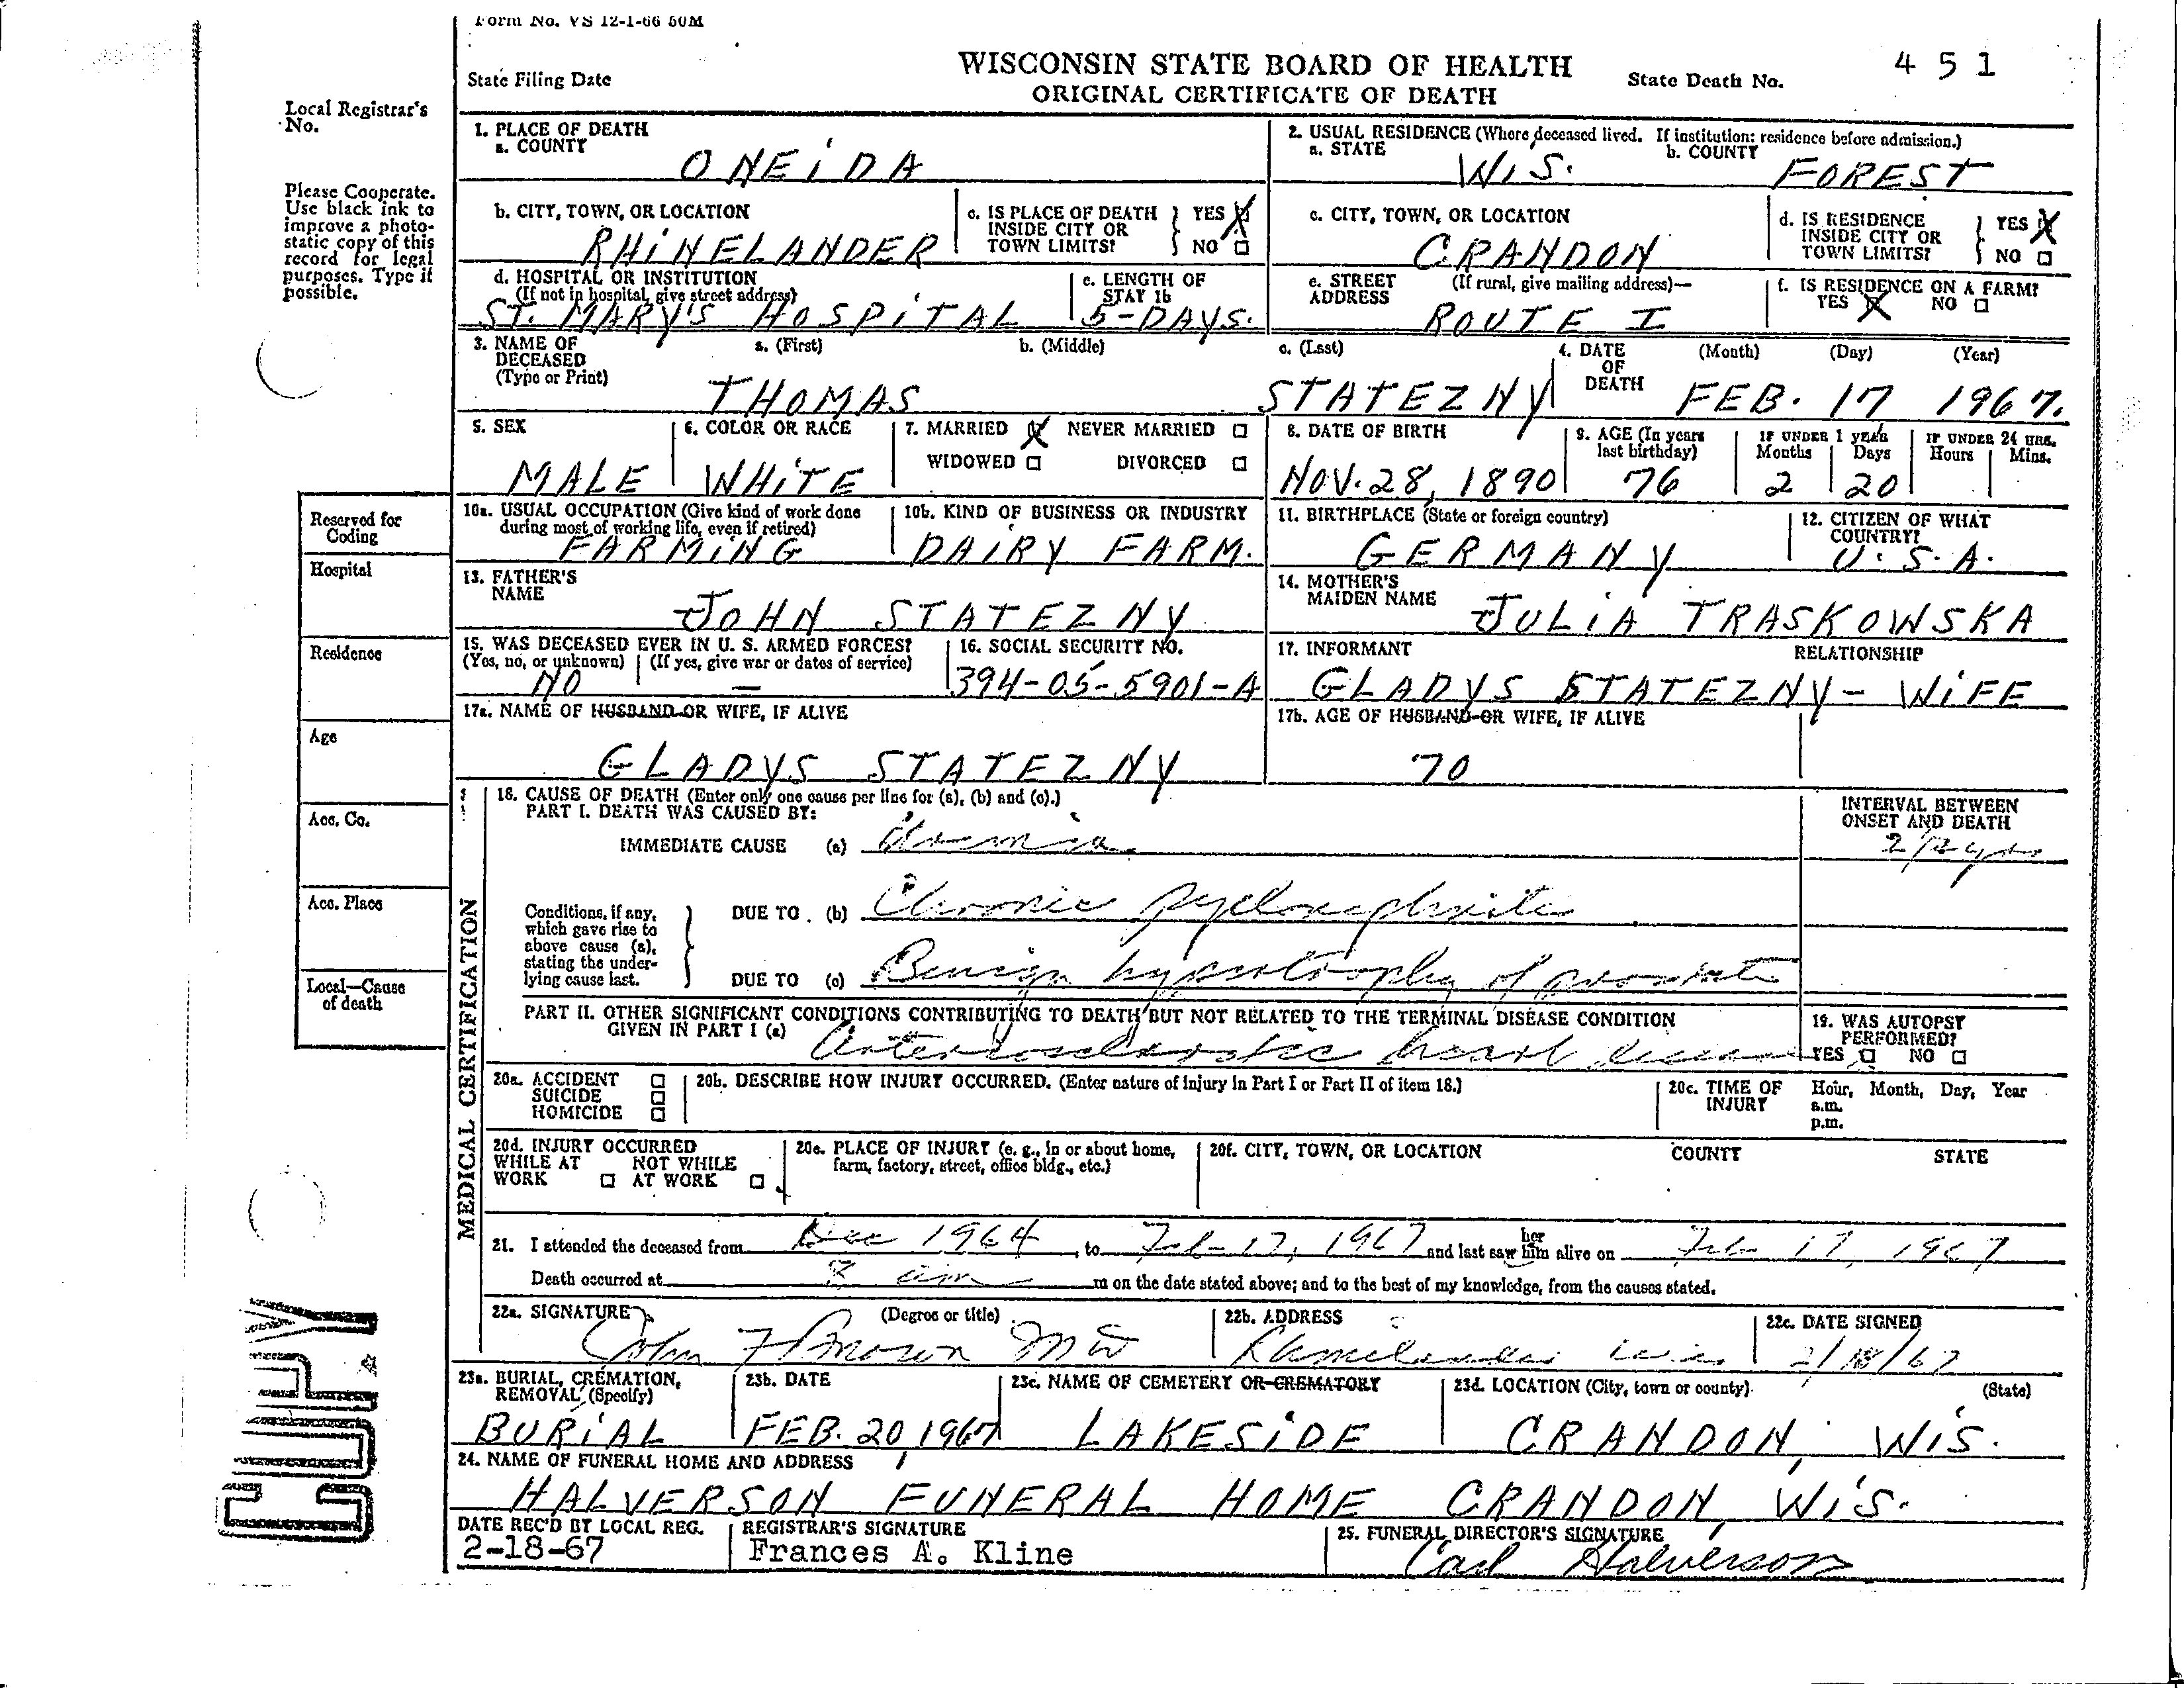 Form No. VS 12-1-66 50M
WISCONSIN STATE BOARD OF HEALTH
ORIGINAL CERTIFICATE OF DEATH
State Filing Date
State Death No. 451
Local Registrar's No.
Please Cooperate. Use black ink to improve a photostatic copy of this record for legal purposes. Type if possible.
1. PLACE OF DEATH
a. COUNTY
ONEIDA
2. USUAL RESIDENCE (Where deceased lived. If institution: residence before admission.)
a. STATE WIS. b. COUNTY FOREST
b. CITY, TOWN, OR LOCATION
RHINELANDER
c. IS PLACE OF DEATH INSIDE CITY OR TOWN LIMITS? YES X NO
c. CITY, TOWN, OR LOCATION
CRANDON
d. IS RESIDENCE INSIDE CITY OR TOWN LIMITS? YES X NO
d. HOSPITAL OR INSTITUTION
(If not in hospital, give street address)
ST. MARY'S HOSPITAL
e. LENGTH OF STAY 1b
5-DAYS.
e. STREET ADDRESS (If rural, give mailing address)—
ROUTE I
f. IS RESIDENCE ON A FARM?
YES X NO
3. NAME OF DECEASED (Type or Print)
a. (First) b. (Middle) c. (Last)
THOMAS STATEZNY
4. DATE OF DEATH (Month) (Day) (Year)
FEB. 17 1967.
5. SEX
MALE
6. COLOR OR RACE
WHITE
7. MARRIED X NEVER MARRIED
WIDOWED DIVORCED
8. DATE OF BIRTH
NOV. 28, 1890
9. AGE (In years last birthday)
76
IF UNDER 1 YEAR
Months Days
2 20
IF UNDER 24 HRS.
Hours Mins.
10a. USUAL OCCUPATION (Give kind of work done during most of working life, even if retired)
FARMING
10b. KIND OF BUSINESS OR INDUSTRY
DAIRY FARM.
11. BIRTHPLACE (State or foreign country)
GERMANY
12. CITIZEN OF WHAT COUNTRY?
U.S.A.
13. FATHER'S NAME
JOHN STATEZNY
14. MOTHER'S MAIDEN NAME
JULIA TRASKOWSKA
15. WAS DECEASED EVER IN U. S. ARMED FORCES?
(Yes, no, or unknown) (If yes, give war or dates of service)
NO —
16. SOCIAL SECURITY NO.
394-05-5901-A
17. INFORMANT RELATIONSHIP
GLADYS STATEZNY - WIFE
17a. NAME OF HUSBAND OR WIFE, IF ALIVE
GLADYS STATEZNY
17b. AGE OF HUSBAND OR WIFE, IF ALIVE
70
Reserved for Coding
Hospital
Residence
Age
Acc. Co.
Acc. Place
Local—Cause of death
MEDICAL CERTIFICATION
18. CAUSE OF DEATH (Enter only one cause per line for (a), (b) and (c).)
PART I. DEATH WAS CAUSED BY:
INTERVAL BETWEEN ONSET AND DEATH
IMMEDIATE CAUSE (a) Uremia
2 1/2 yrs
Conditions, if any, which gave rise to above cause (a), stating the underlying cause last.
DUE TO (b) Chronic pyelonephritis
DUE TO (c) Benign hypertrophy of prostate
PART II. OTHER SIGNIFICANT CONDITIONS CONTRIBUTING TO DEATH BUT NOT RELATED TO THE TERMINAL DISEASE CONDITION GIVEN IN PART I (a)
Arteriosclerotic heart disease
19. WAS AUTOPSY PERFORMED?
YES NO
20a. ACCIDENT
SUICIDE
HOMICIDE
20b. DESCRIBE HOW INJURY OCCURRED. (Enter nature of injury in Part I or Part II of item 18.)
20c. TIME OF INJURY Hour, Month, Day, Year
a.m.
p.m.
20d. INJURY OCCURRED
WHILE AT WORK NOT WHILE AT WORK
20e. PLACE OF INJURY (e. g., in or about home, farm, factory, street, office bldg., etc.)
20f. CITY, TOWN, OR LOCATION COUNTY STATE
21. I attended the deceased from Dec 1964, to Feb 17, 1967 and last saw her him alive on Feb 17, 1967
Death occurred at 8 am m on the date stated above; and to the best of my knowledge, from the causes stated.
22a. SIGNATURE (Degree or title)
John MD
22b. ADDRESS
Rhinelander Wis
22c. DATE SIGNED
2/18/67
23a. BURIAL, CREMATION, REMOVAL (Specify)
BURIAL
23b. DATE
FEB. 20, 1967
23c. NAME OF CEMETERY OR CREMATORY
LAKESIDE
23d. LOCATION (City, town or county) (State)
CRANDON, WIS.
24. NAME OF FUNERAL HOME AND ADDRESS
HALVERSON FUNERAL HOME CRANDON, WIS.
DATE REC'D BY LOCAL REG.
2-18-67
REGISTRAR'S SIGNATURE
Frances A. Kline
25. FUNERAL DIRECTOR'S SIGNATURE
Carl Halverson
COPY